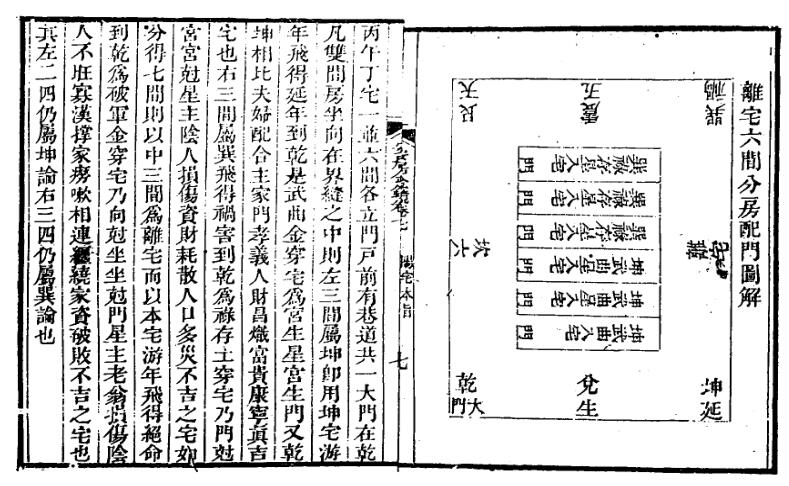 離宅六間分房配門圖解
巽禍
震五
艮天
離宅
坎六
坤延
兌生
乾大門
巽祿存入宅門
巽祿存土入宅門
巽祿存土入宅門
坤武曲入宅門
坤武曲星入宅門
坤武曲入宅門
丙午丁宅一並六間各立門戸前有巷道共一大門在乾
凡雙間房坐向在界縫之中則左三間屬坤卽用坤宅游
年飛得延年到乾是武曲金穿宅爲宮生星宮生門又乾
坤相比夫婦配合主家門孝義人財昌熾富貴康寧真吉
宅也右三間屬巽飛得禍害到乾爲祿存土穿宅乃門尅
宮宮尅星主陰人損傷資財耗散人口多災不吉之宅如
分得七間則以中三間爲離宅而以本宅游年飛得絕命
到乾爲破軍金穿宅乃向尅坐坐尅門星主老翁損傷陰
人不旺寡漢撑家癆嗽相連纒繞家資破敗不吉之宅也
其左二四仍屬坤論右三四仍屬巽論也
陽宅本旨
七